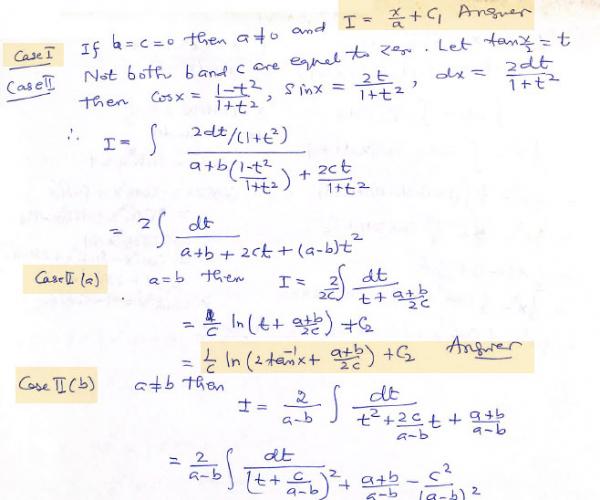 Case I If b=c=0 then a≠0 and I = x/a + C₁ Answer
Case II Not both b and c are equal to zero. Let tan x/2 = t
then cosx = (1-t²)/(1+t²), sinx = 2t/(1+t²), dx = 2dt/(1+t²)
∴ I = ∫ (2dt/(1+t²)) / (a+b((1-t²)/(1+t²)) + 2ct/(1+t²))
= 2∫ dt/(a+b+2ct+(a-b)t²)
Case II (a) a=b then I = 2/2c ∫ dt/(t + (a+b)/2c)
= 1/c ln(t + (a+b)/2c) + C₂
= 1/c ln(2tan⁻¹x + (a+b)/2c) + C₂ Answer
Case II (b) a≠b then
I = 2/(a-b) ∫ dt/(t² + 2c/(a-b) t + (a+b)/(a-b))
= 2/(a-b) ∫ dt/((t + c/(a-b))² + (a+b)/(a-b) - c²/(a-b)²)